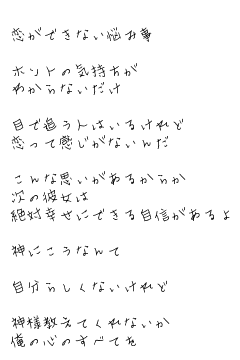 恋ができない悩み事
ホントの気持ちが
わからないだけ
目で追う人はいるけれど
恋って感じがないんだ
こんな思いがあるからか
次の彼女は
絶対幸せにできる自信があるよ
神にこうなんて
自分らしくないけれど
神様教えてくれないか
俺の心のすべてを